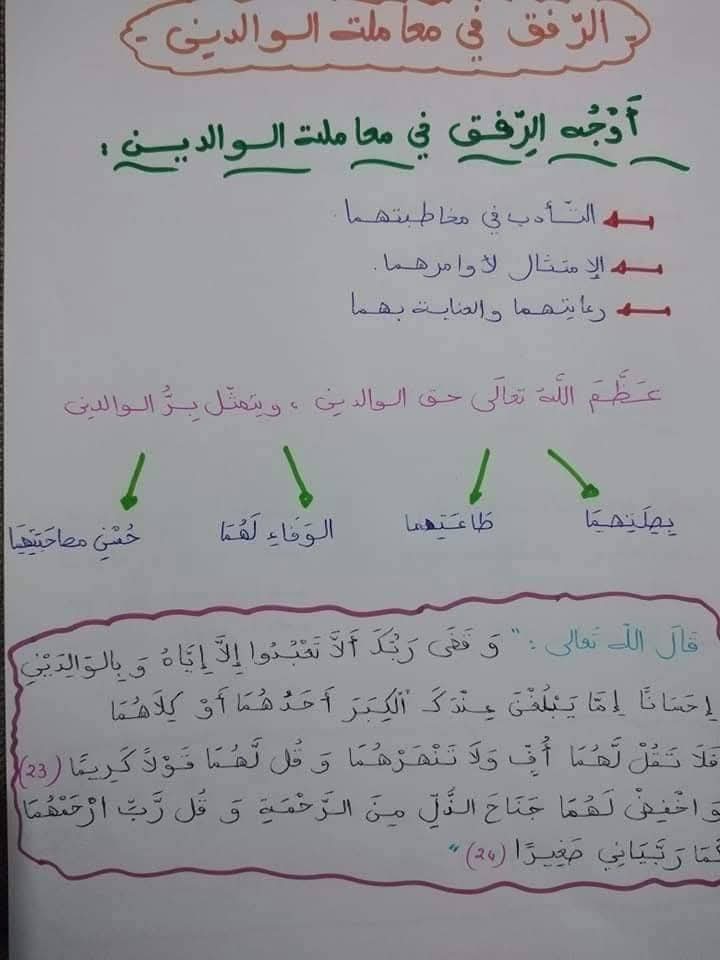 - الرّفق في معاملة الوالدين -
أَوْجُه الرِّفق في معاملة الوالدين :
التّأدب في مخاطبتهما.
الإمتثال لأوامرهما.
رعايتهما والعناية بهما
عَظَّمَ اللَّهُ تعالَى حق الوالدين ، ويتمثّل بِرُّ الوالدين
بِصِلَتِهِمَا طَاعَتِهما الوَفَاءِ لَهُمَا حُسْنِ مصاحَبَتِهِمَا
قَالَ اللّه تَعالى : " وَ قَضَى رَبُّكَ أَلاَّ تَعْبُدُوا إِلاَّ إِيَّاهُ وَ بِالوَالِدَيْنِ
إِحْسَانًا إِمَّا يَبْلُغَنَّ عِنْدَكَ الْكِبَرَ أَحَدُهُمَا أَوْ كِلاَهُمَا
فَلاَ تَقُلْ لَّهُمَا أُفٍّ وَلاَ تَنْهَرْهُمَا وَ قُل لَّهُمَا قَوْلاً كَرِيمًا (23)
وَ اخْفِضْ لَهُمَا جَنَاحَ الذُّلِّ مِنَ الرَّحْمَةِ وَ قُل رَّبِّ ارْحَمْهُمَا
كَمَا رَبَّيَانِي صَغِيرًا (24) "